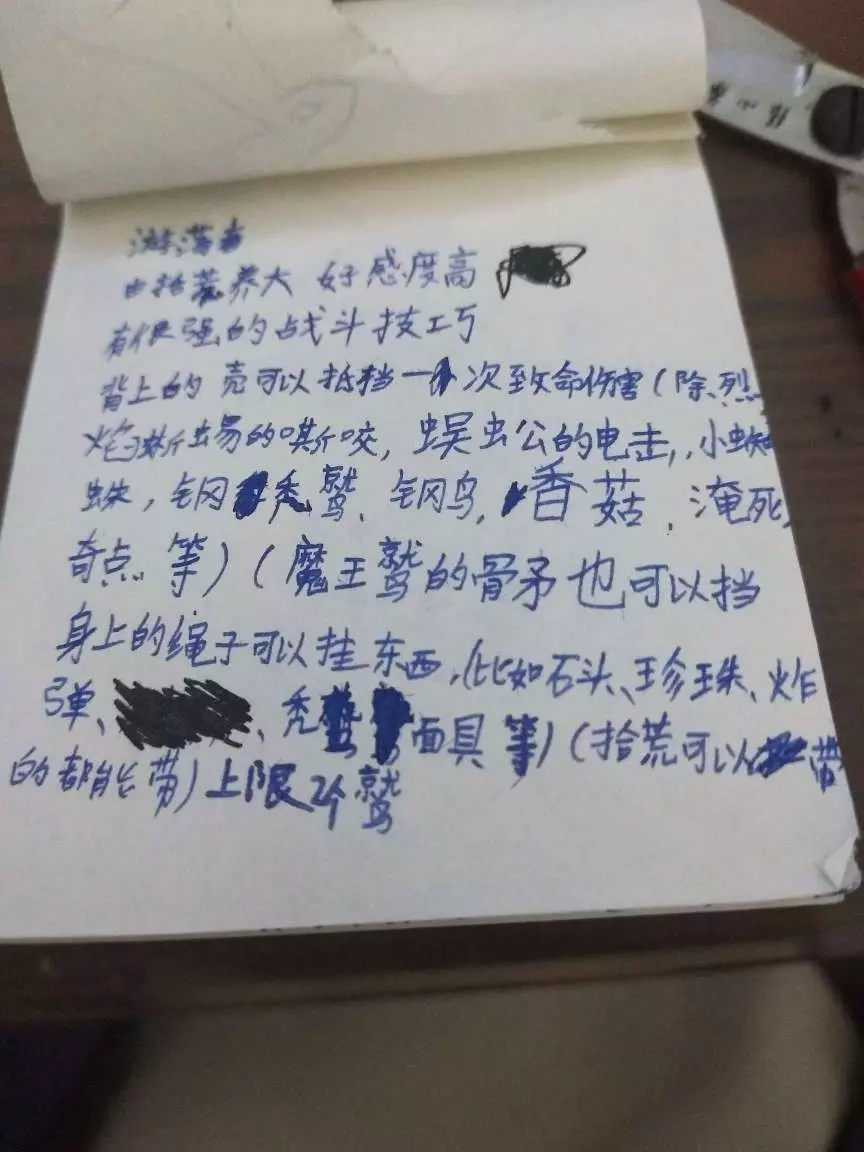 游荡者
由拾荒养大 好感度高
有很强的战斗技巧
背上的壳可以抵挡一次致命伤害(除烈
焰蜥蜴的嘶咬,蜈蚣的电击,小蜘
蛛,钢秃鹫、钢鸟,香菇,淹死,
奇点等)(魔王鹫的骨矛也可以挡
身上的绳子可以挂东西,(比如石头、珍珠、炸
弹、、秃鹫面具等)(拾荒可以带
的都能带)上限2个鹫